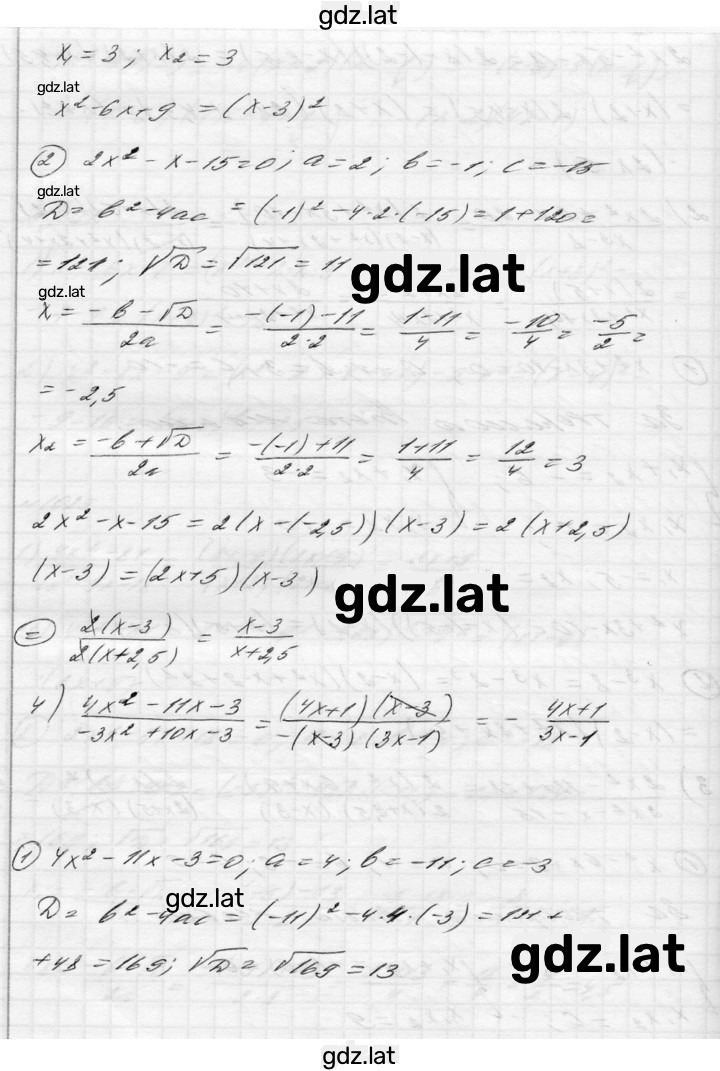 gdz.lat
x₁ = 3; x₂ = 3
gdz.lat
x² - 6x + 9 = (x-3)²
② 2x² - x - 15 = 0; a = 2; b = -1; c = -15
gdz.lat
D = b² - 4ac = (-1)² - 4·2·(-15) = 1 + 120 =
= 121; √D = √121 = 11
gdz.lat
gdz.lat
x₁ = (-b - √D)/2a = (-(-1) - 11)/2·2 = (1-11)/4 = -10/4 = -5/2 =
= -2,5
x₂ = (-b + √D)/2a = (-(-1) + 11)/2·2 = (1+11)/4 = 12/4 = 3
2x² - x - 15 = 2(x-(-2,5))(x-3) = 2(x+2,5)
(x-3) = (2x+5)(x-3)
gdz.lat
⊜ 2(x-3)/2(x+2,5) = (x-3)/(x+2,5)
4) (4x² - 11x - 3)/(-3x² + 10x - 3) = (4x+1)(x-3)/-(x-3)(3x-1) = - (4x+1)/(3x-1)
① 4x² - 11x - 3 = 0; a = 4; b = -11; c = -3
gdz.lat
D = b² - 4ac = (-11)² - 4·4·(-3) = 121 +
gdz.lat
+ 48 = 169; √D = √169 = 13
gdz.lat